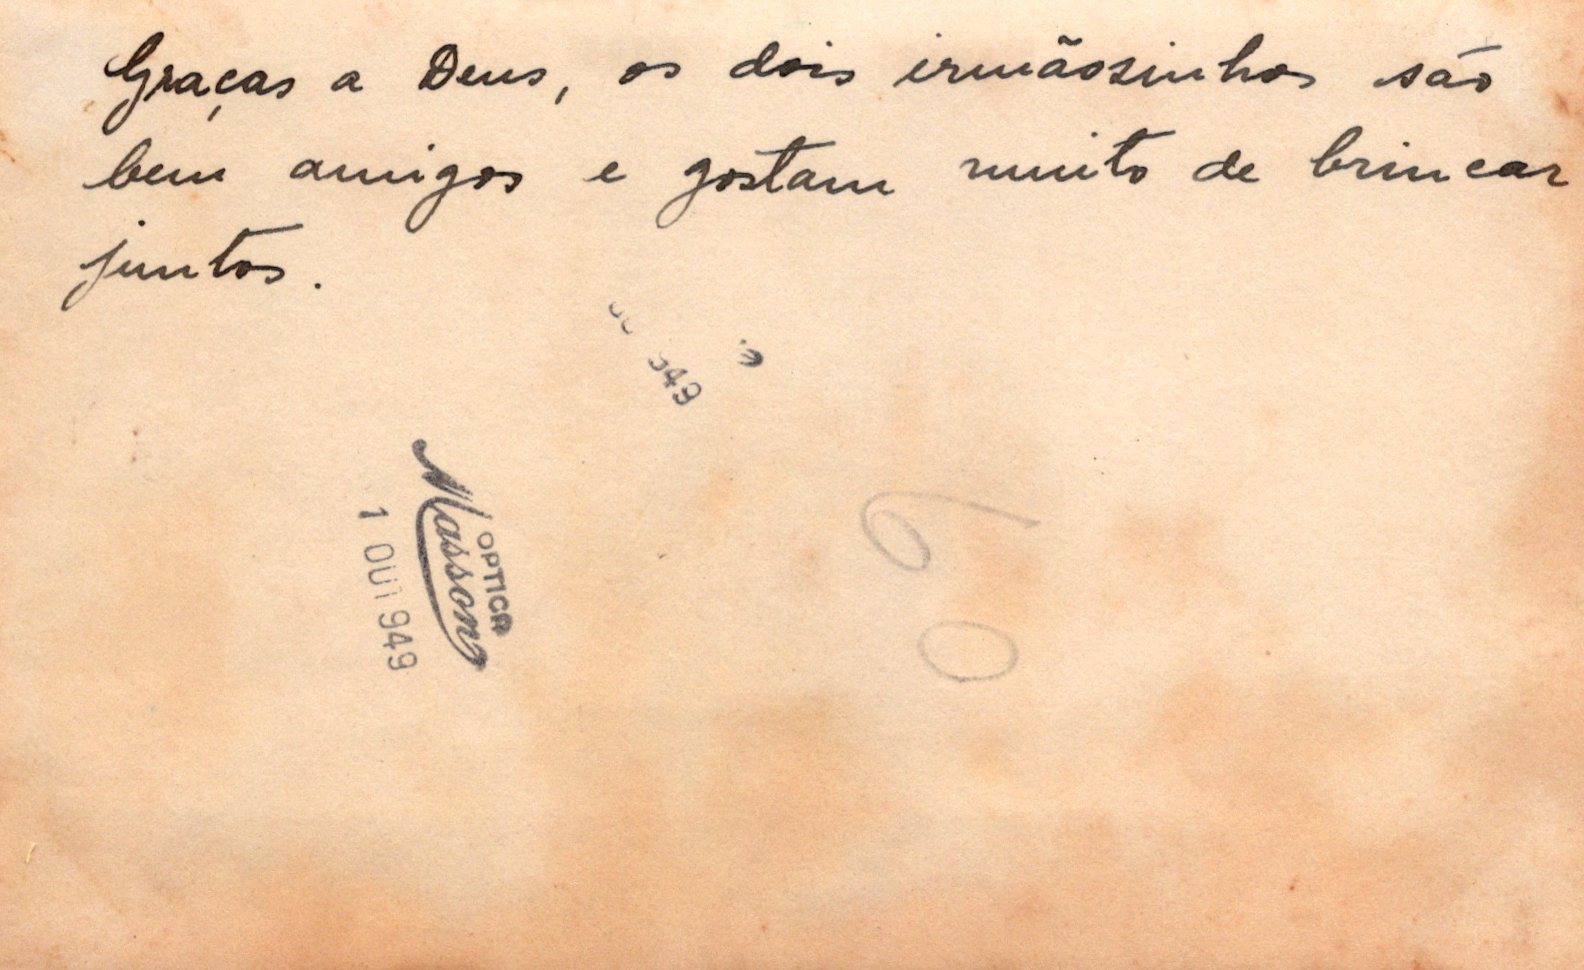 Graças a Deus, os dois irmãosinhos são
bem amigos e gostam muito de brincar
juntos.
949
OPTICA
Masson
1 OUT 949
60